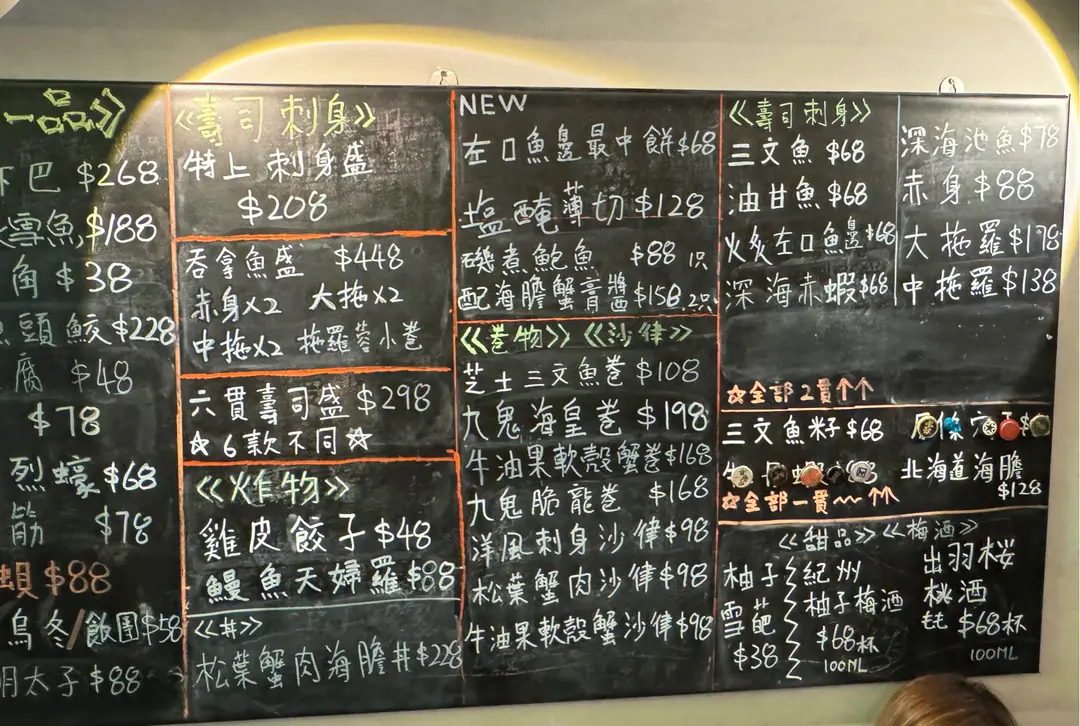 一品》
巴 $268
雪魚 $188
角 $38
頭鮫 $228
腐 $48
$78
烈蠔 $68
筋 $78
$88
烏冬/飯團 $58
明太子 $88
《壽司刺身》
特上刺身盛
$208
吞拿魚盛 $448
赤身x2 大拖x2
中拖x2 拖羅蓉小卷
六貫壽司盛 $298
☆6款不同☆
《炸物》
雞皮餃子 $48
鰻魚天婦羅 $88
《丼》
松葉蟹肉海膽丼 $228
NEW
左口魚邊最中餅 $68
塩醃薄切 $128
磯煮鮑魚 $88 1只
配海膽蟹膏醬 $158 2只
《卷物》《沙律》
芝士三文魚卷 $108
九鬼海皇卷 $198
牛油果軟殼蟹卷 $168
九鬼脆龍卷 $168
洋風刺身沙律 $98
松葉蟹肉沙律 $98
牛油果軟殼蟹沙律 $98
《壽司刺身》
三文魚 $68
油甘魚 $68
火炙左口魚邊 $68
深海赤蝦 $68
深海池魚 $78
赤身 $88
大拖羅 $178
中拖羅 $138
☆全部2貫↑↑
三文魚籽 $68
北海道海膽
$128
☆全部一貫~~↑↑
《甜品》《梅酒》
柚子
雪葩
$38
紀州
柚子梅酒
$68杯
100ML
出羽桜
桃酒
$68杯
100ML